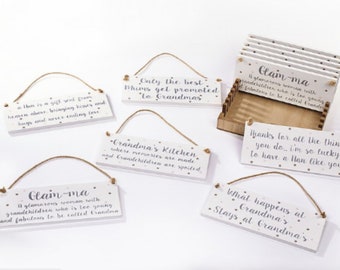 a Nan is a gift sent from
heaven above, bringing kisses and
hugs and never ending love
Only the best
Mums get promoted
to Grandmas
Glam-ma
A glamorous woman with
grandchildren who is too young
and fabulous to be called Grandma
Grandma's Kitchen
where memories are made
and Grandchildren are spoiled
thanks for all the things
you do, i'm so lucky
to have a Nan like you
Glam-ma
A glamorous woman with
grandchildren who is too young
and fabulous to be called Grandma
What happens at
Grandma's
Stays at Grandma's